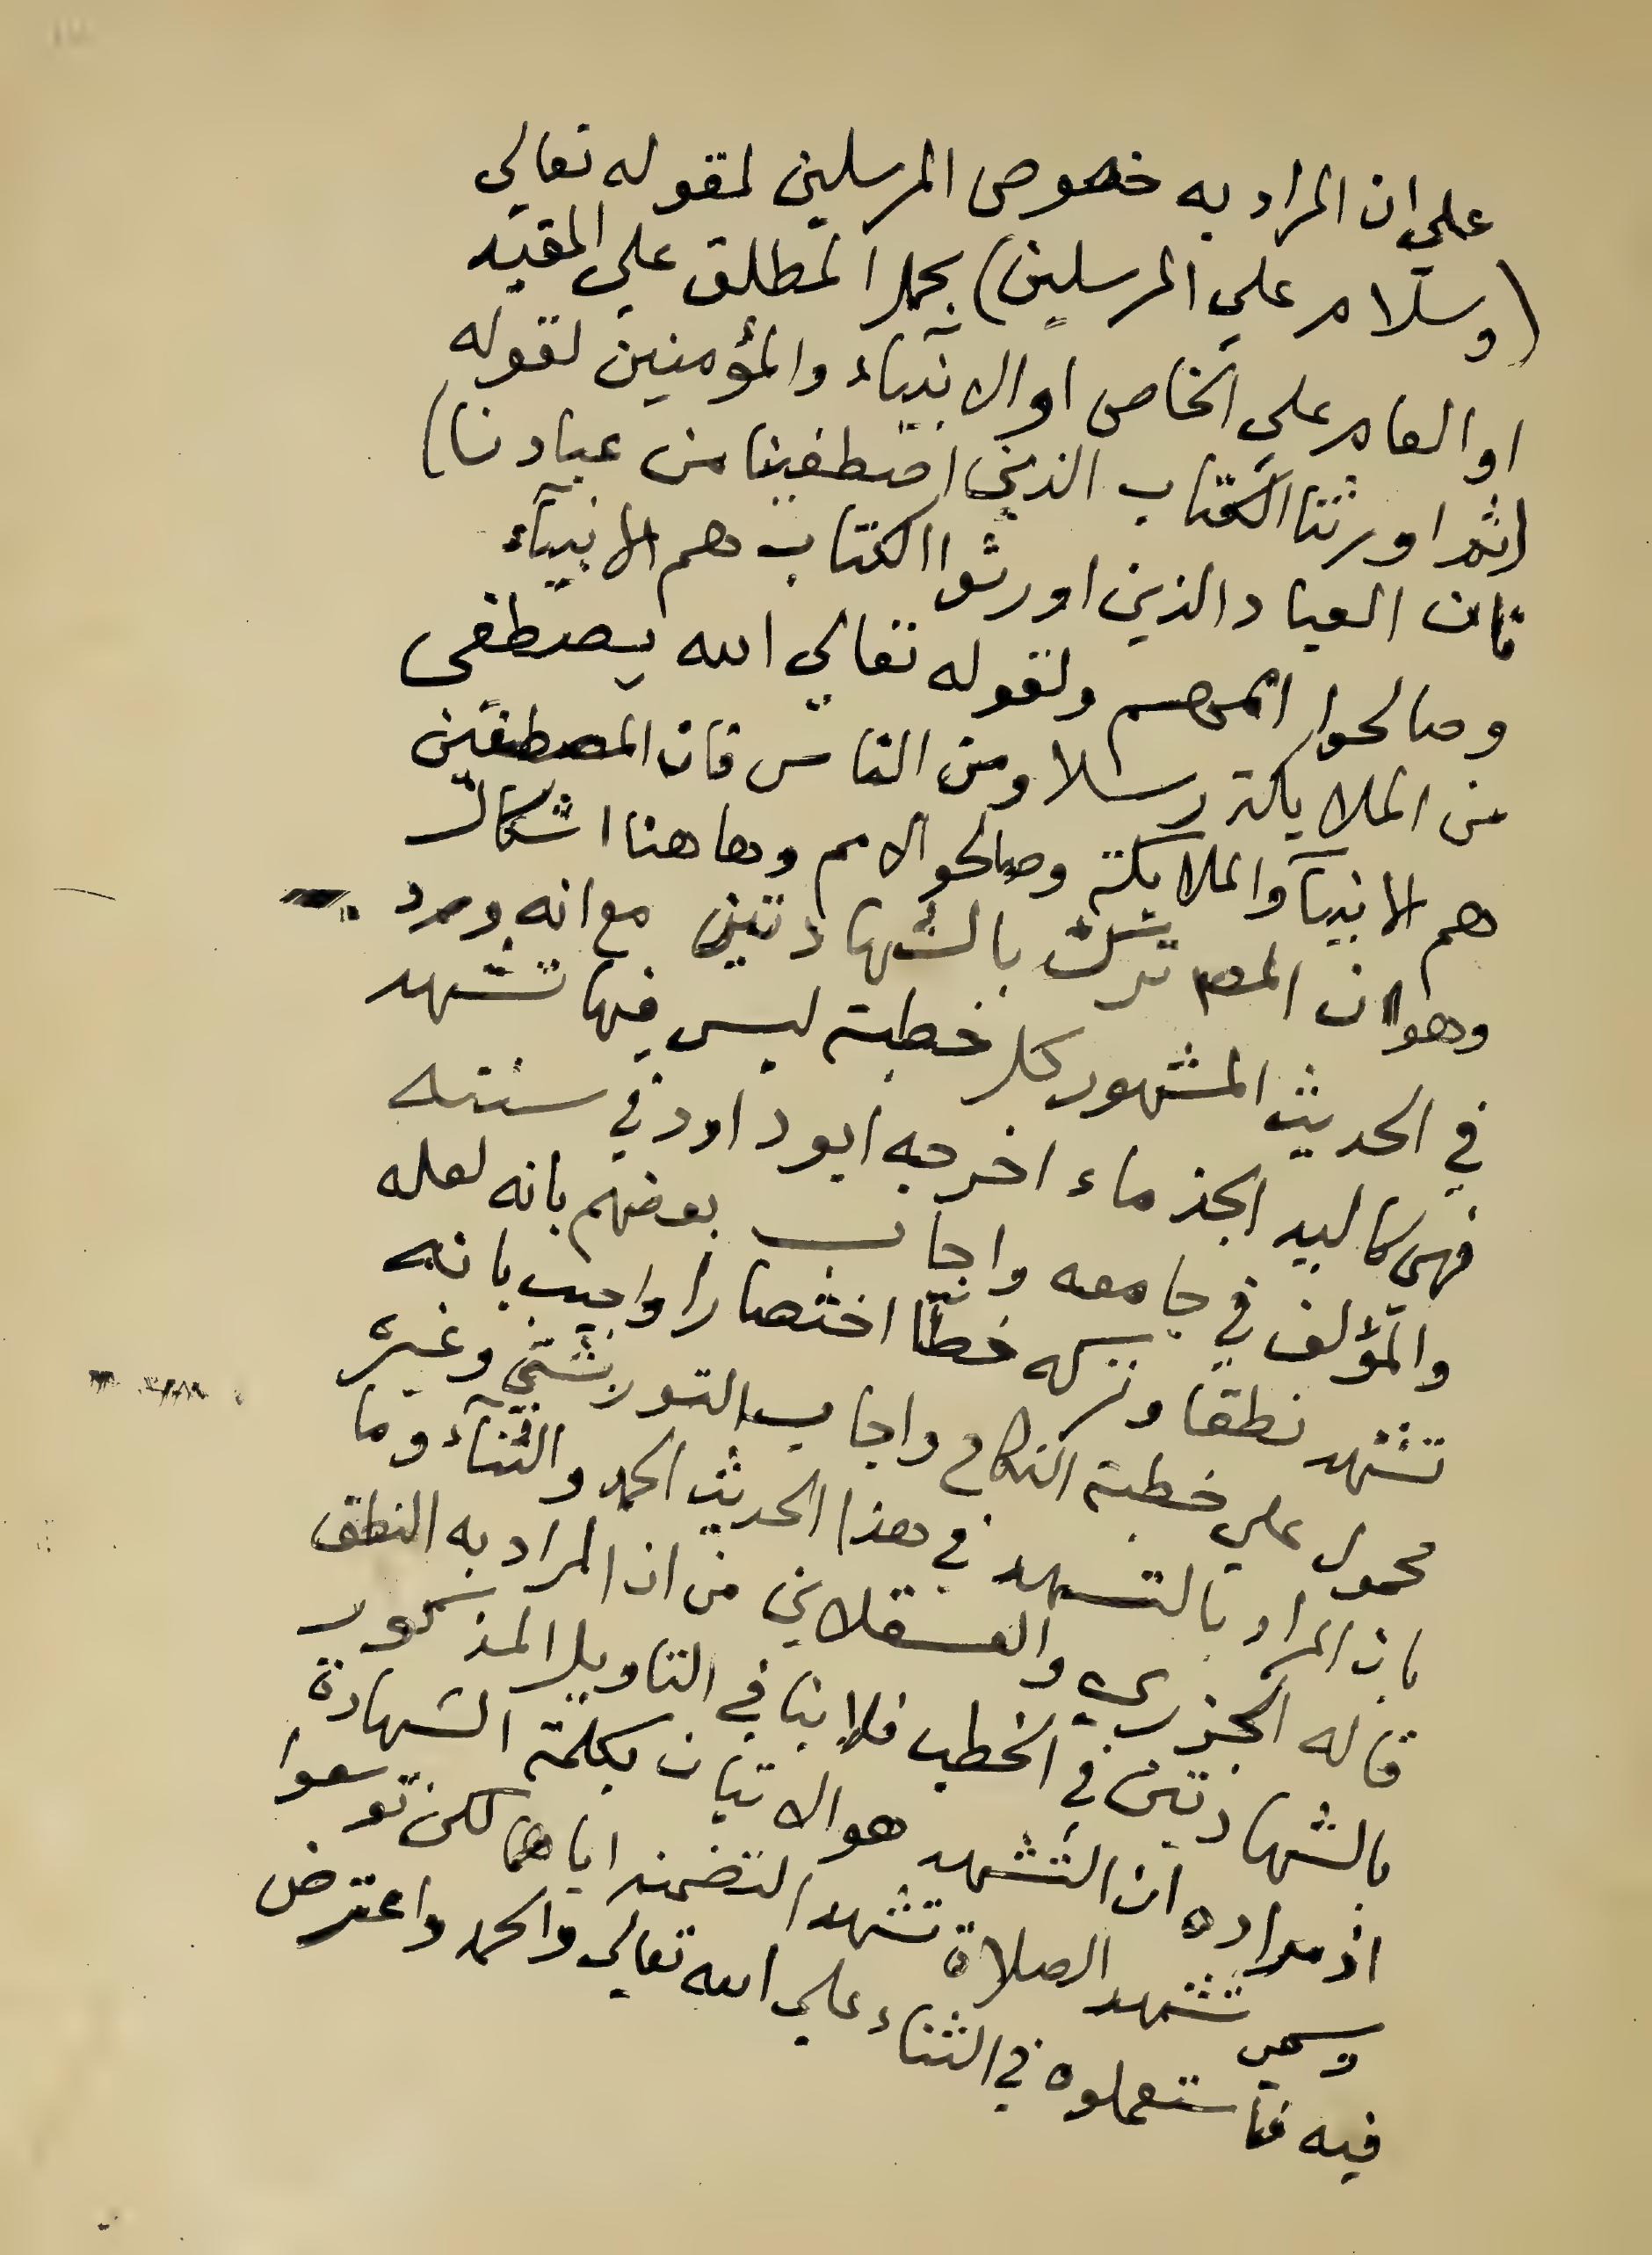 علي ان المراد به خصوص المرسلين لمقوله تعالي
(وسلام علي المرسلين) بحمل المطلق علي المقيد
او العام علي الخاص او الانبياء والمؤمنين لقوله
(ثم اورثنا الكتاب الذين اصطفينا من عبادنا)
فان العباد الذين اورثوا الكتاب هم الانبيآء
وصالحوا اممهم ولقوله تعالي الله يصطفى
من الملايكة رسلا ومن الناس فان المصطفين
هم الانبيآ والملايكة وصالحو الامم وها هنا اشكال
وهو ان المصـ ترك بالشهادتين مع انه ورد
في الحديث المشهور كل خطبة ليس فيها تشهد
فهي كاليد الجذماء اخرجه ابو داود في سننه
والمؤلف في جامعه واجاب بعضهم بانه لعله
تشهد نطقا وتركه خطّا اختصارا واجيب بانه
محمول علي خطبة النكاح واجاب التوربشتي وغيره
بان المراد بالتشهد في هذا الحديث الحمد والثنآء وما
قاله الجزري والعسقلاني من ان المراد به النطق
بالشهادتين في الخطب فلا ينافي التاويل المذكور
اذ مراده ان التشهد هو الاتيان بكلمة الشهادة
وسمي تشهد الصلاة تشهدا لتضمنه اياهما لكن توسعوا
فيه فاستعملوه في الثناء علي الله تعالي والحمد واعترض